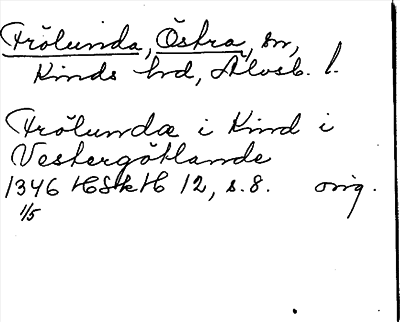 Frölunda, Östra, sn,
Kinds hd, Älvsb. l.
Frölunda i Kind i
Vestergötlande
1346 HSkH 12, s. 8. orig.
1/5